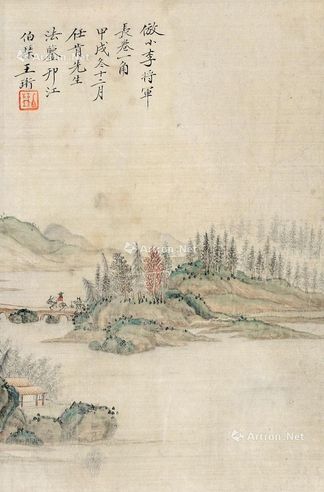 倣小李將軍
長卷一角
甲戌冬十二月
任肯先生
法鑒邗江
伯棠王珩
Artron.Net
Artron.Net